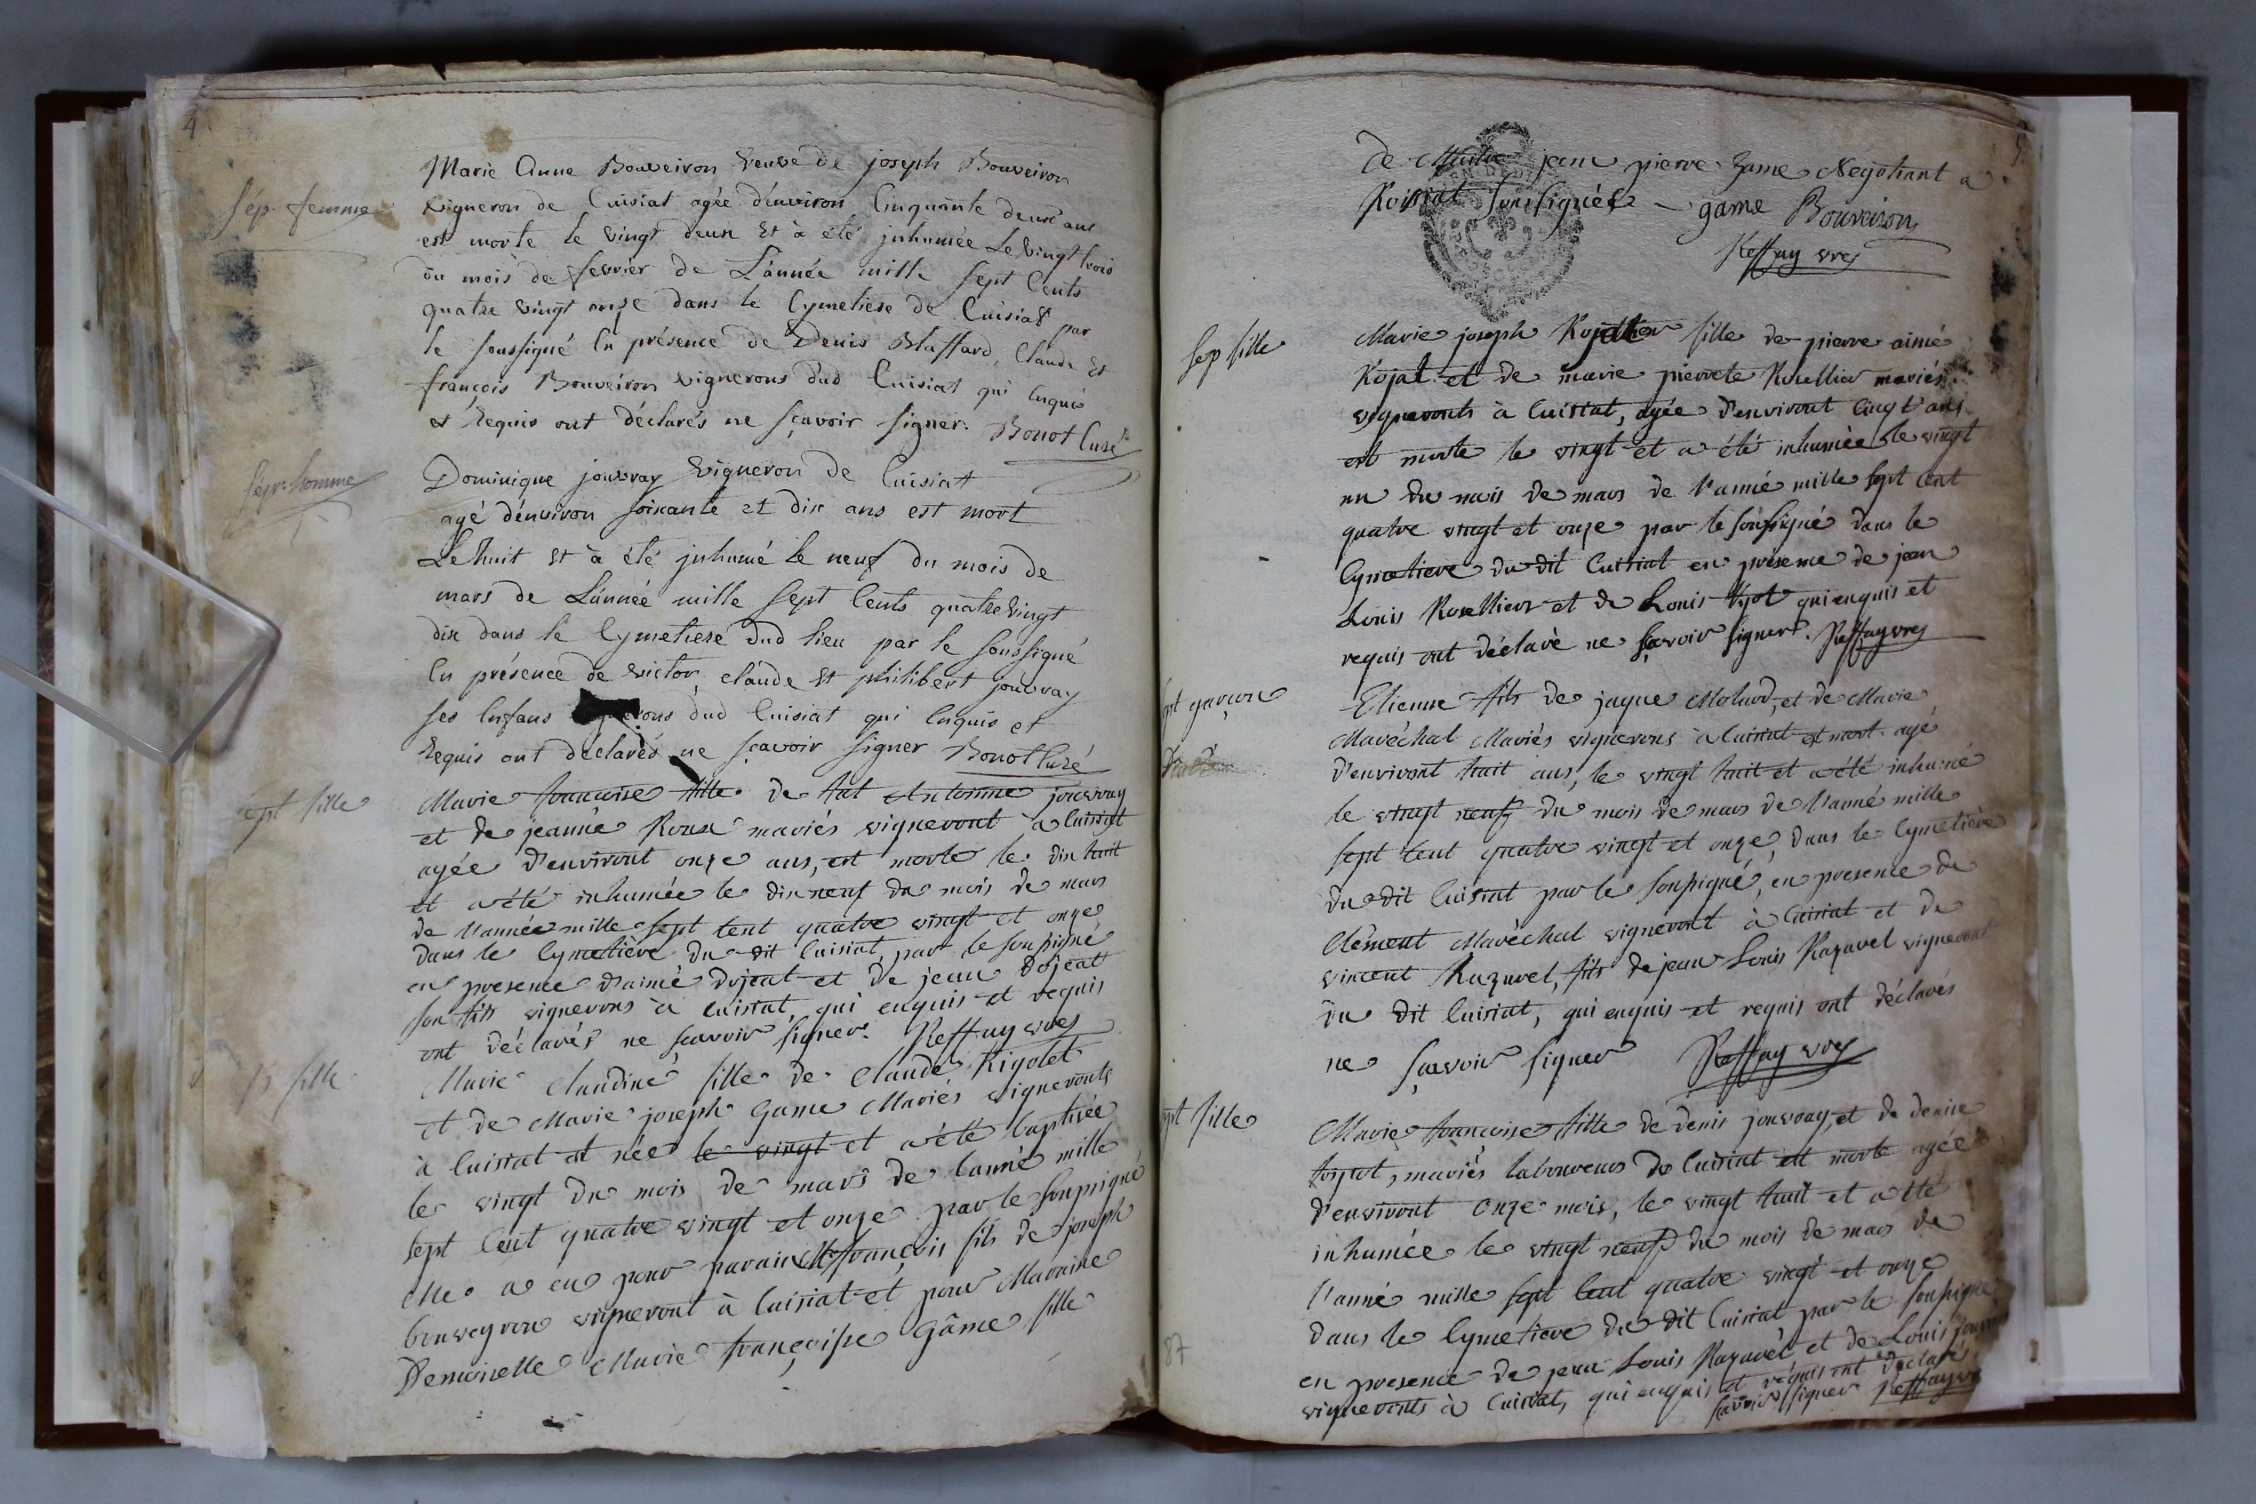 4
sép. femme
Marie Anne Bouveiron veuve de joseph Bouveiron
vigneron de Cuisiat agée d'énviron Cinquante deux ans
est morte le vingt deux et à été jnhumée Le vingt trois
du mois de fevrier de L'année mille sept Cents
quatre vingt onze dans le Cymetiere de Cuisiat par
le soussigné En présence de Denis Blaffard, Claude Et
françois Bouveiron vignerons dud Cuisiat qui Enquis
et Requis ont déclarés ne sçavoir signer. Bonot Curé
sép. homme
Dominique jouvray vigneron de Cuisiat
agé d'énviron soixante et dix ans est mort
Le huit et à été jnhumé le neuf du mois de
mars de L'année mille sept Cents quatre vingt
dix dans le Cymetiere dud lieu par le soussigné
En présence de victor, claude et philibert jouvray
ses Enfans vignerons dud Cuisiat qui Enquis et
Requis ont déclarés ne sçavoir signer Bonot Curé
sept fille
Marie francoise fille de Antoinne jouvray
et de jeanne Roux mariés vigneront a Cuisiat
agée d'environt onze ans, est morte le dix huit
et a été inhumée le dix neuf du mois de mars
de l'année mille sept cent quatre vingt et onze
dans le Cymetière du dit Cuisiat, par le soussigné
en presence d'aimé dojeat et de jean Dojeat
son fils vignerons à Cuisiat, qui enquis et requis
ont déclarés ne scavoir signer. Reffay vre
fille
Marie Claudine fille de Claude Rigolet
et de Marie joseph Game Mariés vigneronts
à Cuisiat est née le vingt et a été baptisée
le vingt du mois de mars de l'anné mille
sept Cent quatre vingt et onze par le soussigné
elle a eu pour parain françois fils de joseph
bouveyron vigneront à Cuisiat et pour Maraine
Demoiselle Marie françoise Gâme fille
de jean pierre game Negotiant a
Roissiat soussignés game Bouveiron
Reffay vre
sep fille
Marie joseph fille de pierre aimé
Rojat et de marie pierrete Rosellier mariés
vigneronts à Cuisiat, agée d'environt Cinqt ans
est morte le vingt et a été inhumée le vingt
un du mois de mars de l'anné mille sept cent
quatre vingt et onze par le soussigné dans le
Cymetiere du dit Cuisiat en presence de jean
Louis Rosellier et de Louis qui enquis et
requis ont déclaré ne scavoir signer. Reffay vre
spt garçon
Etienne fils de jaque Molard, et de Marie
Maréchal Mariés vignerons à Cuisiat est mort agé
d'environt huit ans, le vingt huit et a été inhumé
le vingt neuf du mois de mars de l'anné mille
sept cent quatre vingt et onze, dans le Cymetière
du dit Cuisiat par le soussigné, en presence de
Clément Maréchal vigneront à Cuisiat et de
vincent Razurel, fils de jean Louis Razavel vigneront
du dit Cuisiat, qui enquis et requis ont déclarés
ne sçavoir signer Reffay vre
spt fille
Marie francoise fille de denis jouvray, et de denise
mariés laboureurs de Cuisiat est morte agée
d'environt onze mois, le vingt huit et a été
inhumée le vingt neuf du mois de mars de
l'anné mille sept Cent quatre vingt et onze
dans le Cymetiere du dit Cuisiat par le soussigné
en presence de jean Louis Razavel et de Louis
vigneronts à Cuisiat, qui enquis et requis ont déclarés
scavoir signer Reffay vre
87